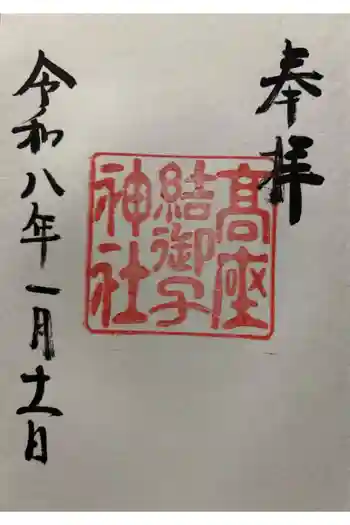 奉拝
高座
結御子
神社
令和八年一月十一日